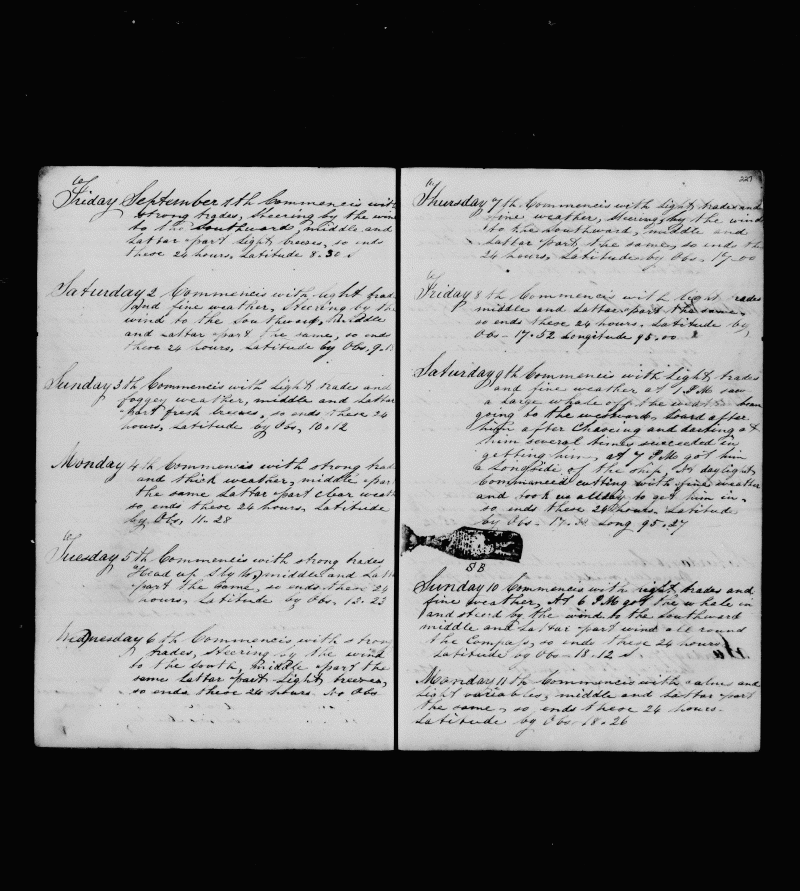 Friday September 1th Commencis with
Strong trades, Steering by the wind
to the Southward, middle and
Lattar part Light breeses, so ends
these 24 hours, Latitude 8-30 S
Saturday 2 Commencis with light trad
and fine weather, Steering by the
wind to the Southward, Middle
and Lattar part the same, so ends
these 24 hours, Latitude by Obs, 9-1
Sunday 3th Commencis with Light trades and
foggey weather, middle and Lattar
part fresh breeses, so ends these 24
hours, Latitude by Obs, 10-12
Monday 4th Commencis with strong trad
and thick weather, middle part
the same Lattar part clear weath
so ends these 24 hours, Latitude
by Obs, 11-28
Tuesday 5th Commencis with strong trades
Head up S by W, middle and Latt
part the same, so ends these 24
hours, Latitude by Obs, 13-23
Wednesday 6th Commencis with strong
trades, Steering by the wind
to the South, Middle part the
same Lattar part Light breeses,
so ends these 24 hours. No Obs
227
Thursday 7th Commencis with light trades and
fine weather, Steering by the wind
to the Southward, middle and
Lattar part the same, so ends the
24 hours, Latitude by Obs, 17-00
Friday 8th Commencis with light trades
middle and Lattar part the same,
so ends these 24 hours, Latitude by
Obs- 17-52 Longitude 95-00
Saturday 9th Commencis with Light, trades
and fine weather at 1 P.M. saw
a Large whale off the
going to the westward, Loard after
him after Chaseing and darting at
him several times succeeded in
getting him, at 7 P.M got him
a Longside of the ship, At daylight
Commenced cutting with fine weather
and took us allday to get him in,
so ends these 24 hours, Latitude
by Obs- 17- Long 95-27
S B
Sunday 10 Commencis with light trades and
fine weather, At 6 P.M got the whale in
and steerd by the wind to the southward
middle and Lattar part wind all round
the Compass, so ends these 24 hours
Latitude by Obs- 18-12 S
Mondars 11th Commencis with calms and
Light variables, middle and Lattar part
the same, so ends these 24 hours-
Latitude by Obs- 18-26